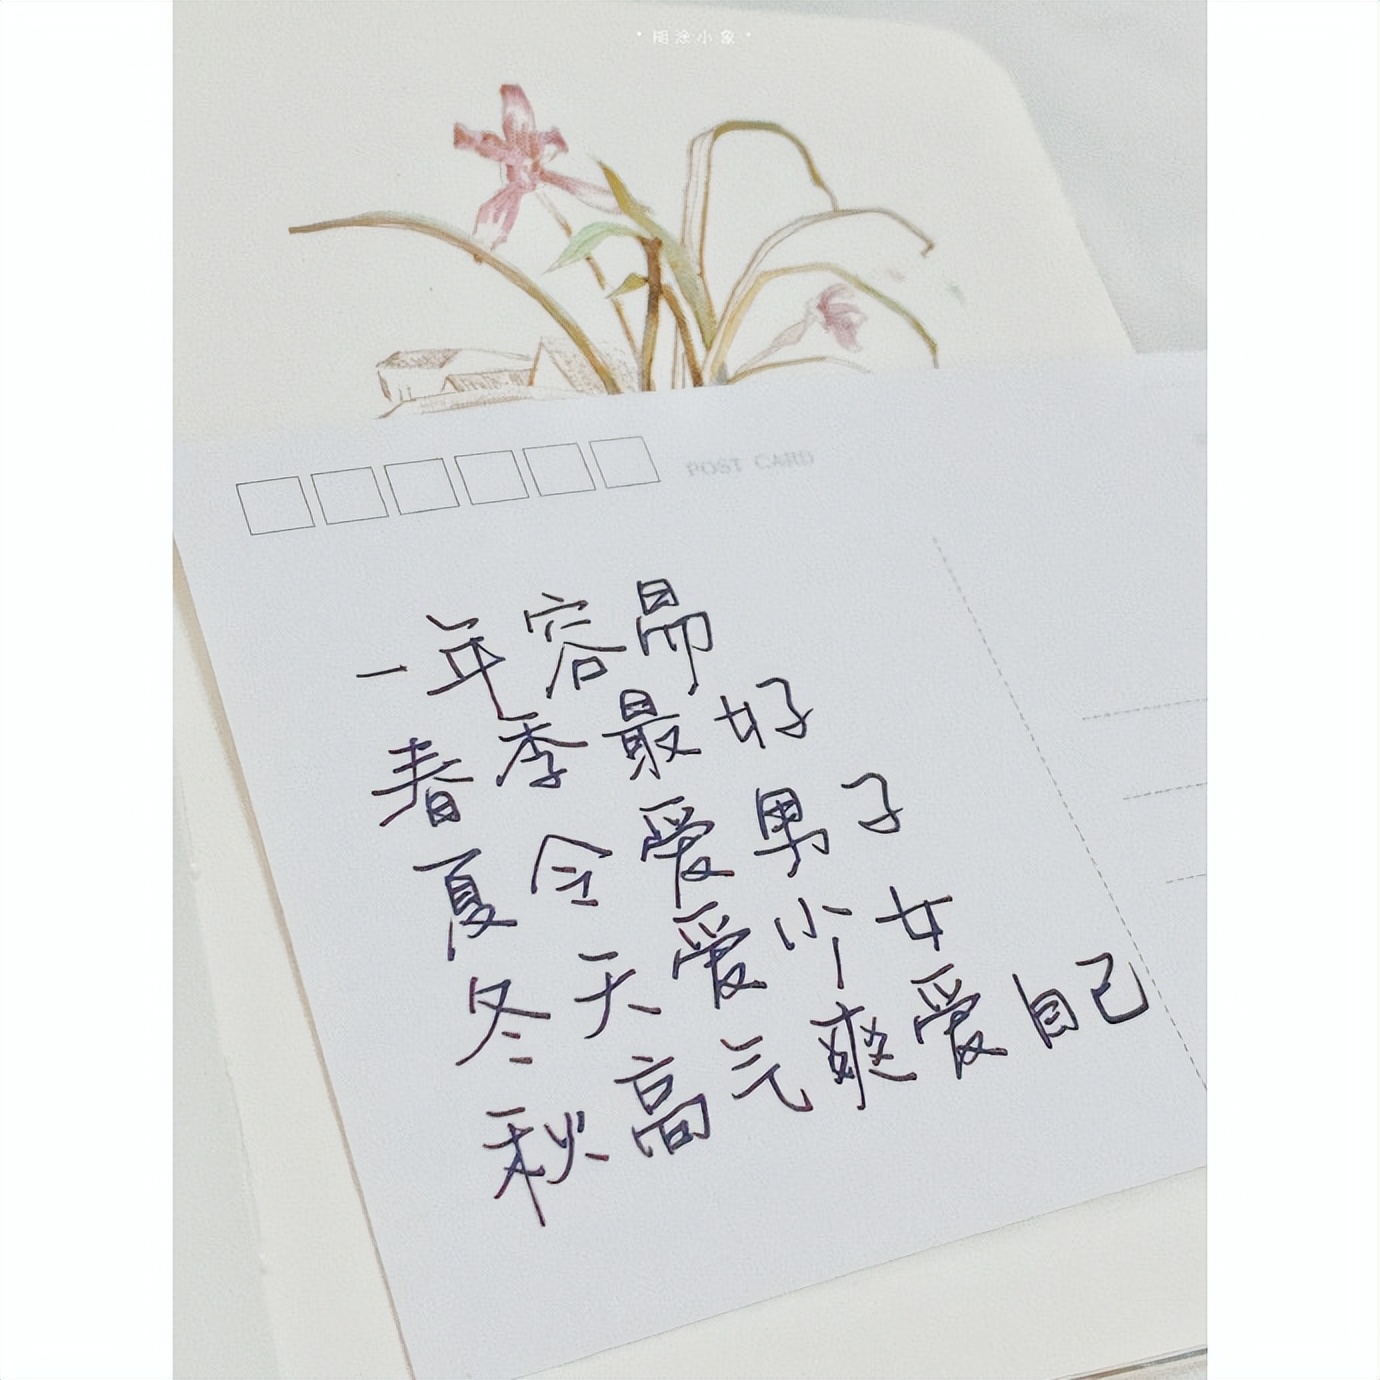 糊涂小象
POST CARD
一年容易
春季最好
夏令爱男子
冬天爱少女
秋高气爽爱自己